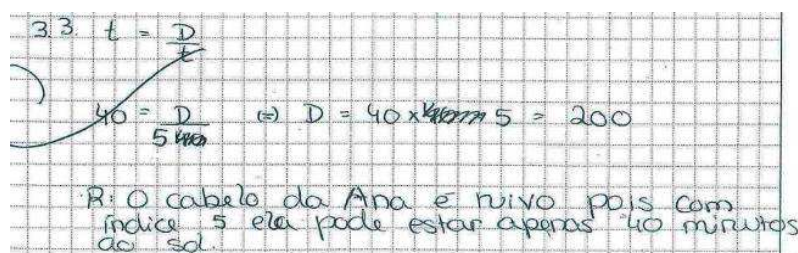 3.3. t = D/t
40 = D/5 (=) D = 40 x 5 = 200
R: O cabelo da Ana é ruivo pois com
índice 5 ela pode estar apenas 40 minutos
ao sol.